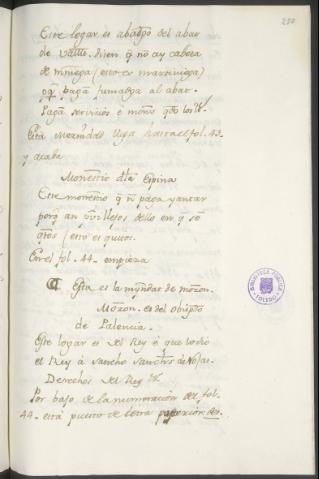 230
Este logar es abadgo del abat
de Vallid. dicen q no ay cabeza
de mmega (esto es martiniega)
pq pagan fumadga al abat.
Pagan servicios e mones qdo los
Esta merindad llega hasta el fol. 43
y acaba
Monesterio dla Espina
Este monesterio q ñ paga yantar
porq an previllejos dello en q sō
qtos (esto es quitos.
En el fol. 44 empieza
Esta es la myndat de monzon.
Monzon. es del obispdo
de Palencia.
Este logar es del Rey é que lo dio
el Rey á Sancho Sanches de Rojas.
Derechos del Rey
Por bajo de la numeracion del fol.
44 está puesto de letra
BIBLIOTECA PUBLICA
TOLEDO